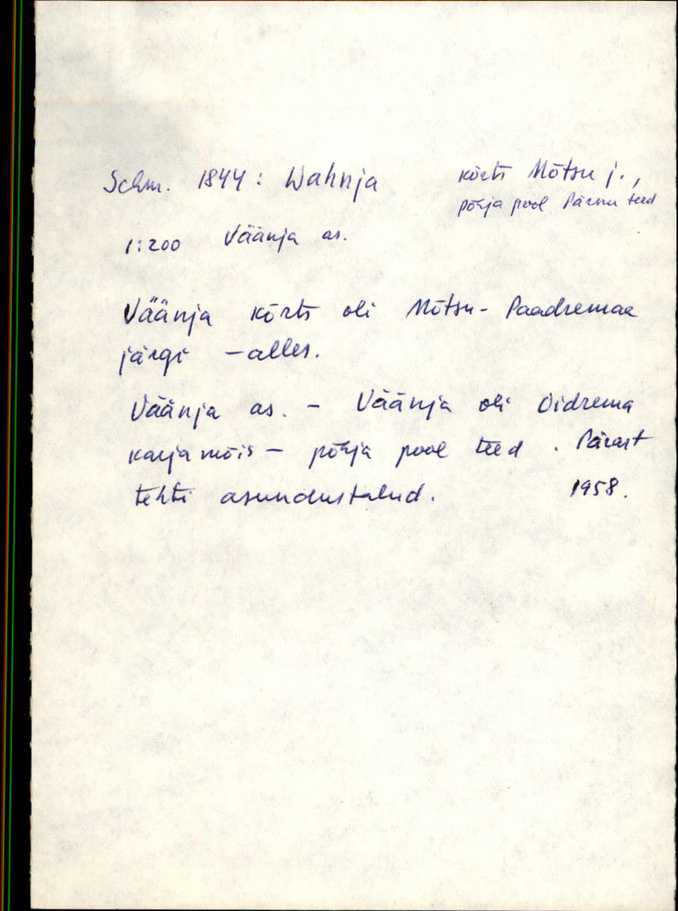 Schm. 1844: Wahnja kõrts Mõtsu j.,
põhja pool Pärnu teed
1:200 Väänja as.
Väänja kõrts oli Mõtsu-Paadremaa
järgi – alles.
Väänja as. – Väänja oli Oidrema
karjamõis – põhja pool teed. Pärast
tehti asundustalud. 1958.